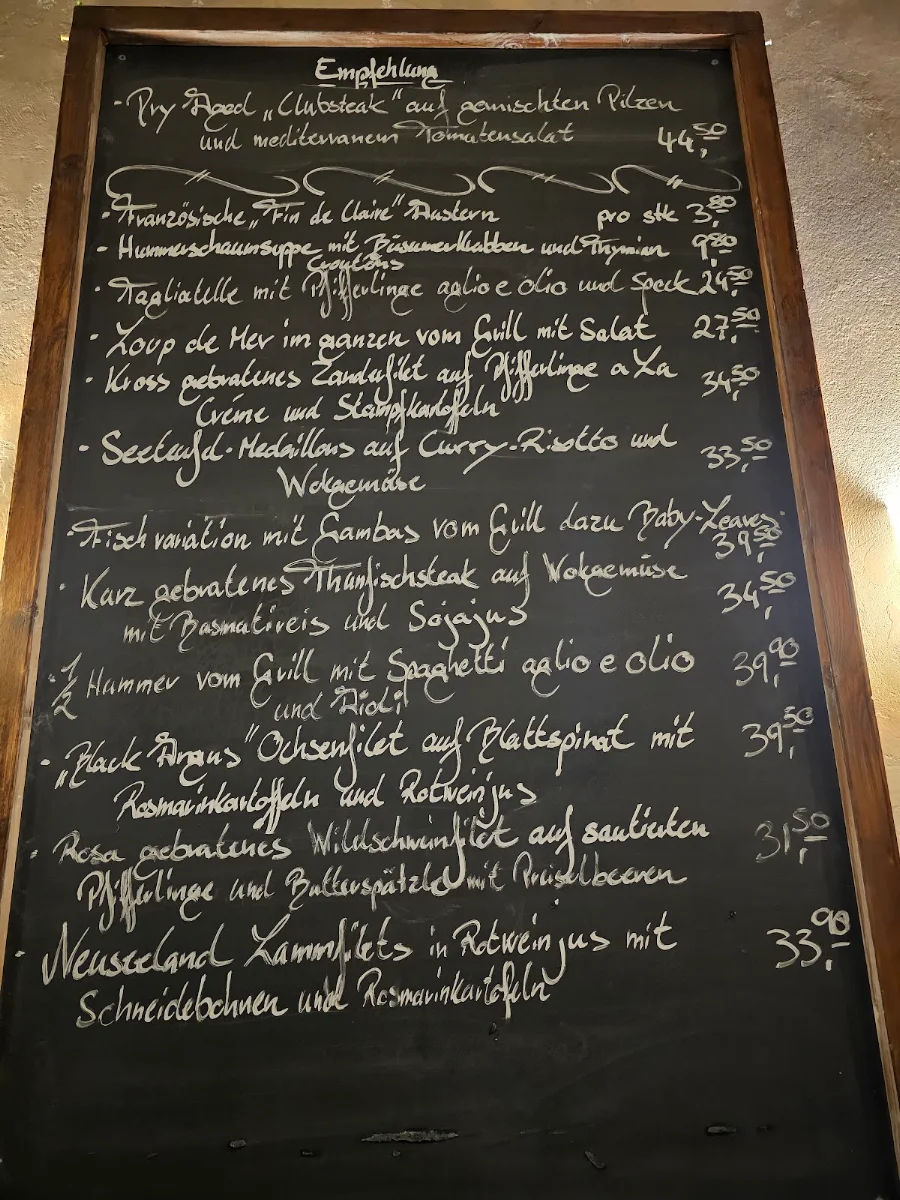 Empfehlung
· Dry Aged „Clubsteak" auf gemischten Pilzen
und mediterranem Tomatensalat 44,50
· Französische „Fin de Claire" Austern pro stk 3,80
· Hummerschaumsuppe mit Büsumerkrabben und Thymian 9,80
Croutons
· Tagliatelle mit Pfifferlinge aglio e olio und Speck 24,50
· Loup de Mer im ganzen vom Grill mit Salat 27,50
· Kross gebratenes Zanderfilet auf Pfifferlinge a La 34,50
Créme und Stampfkartoffeln
· Seeteufel-Medaillons auf Curry-Risotto und 33,50
Wokgemüse
· Fischvariation mit Gambas vom Grill dazu Baby-Leaves
39,50
· Kurz gebratenes Thunfischsteak auf Wokgemüse 34,50
mit Basmatireis und Sojajus
· 1/2 Hummer vom Grill mit Spaghetti aglio e olio 39,90
und Aioli
· „Black Angus" Ochsenfilet auf Blattspinat mit 39,50
Rosmarinkartoffeln und Rotweinjus
· Rosa gebratenes Wildschweinfilet auf sautierten 31,50
Pfifferlinge und Butterspätzle mit Preiselbeeren
· Neuseeland Lammfilets in Rotweinjus mit 33,90
Schneidebohnen und Rosmarinkartofeln